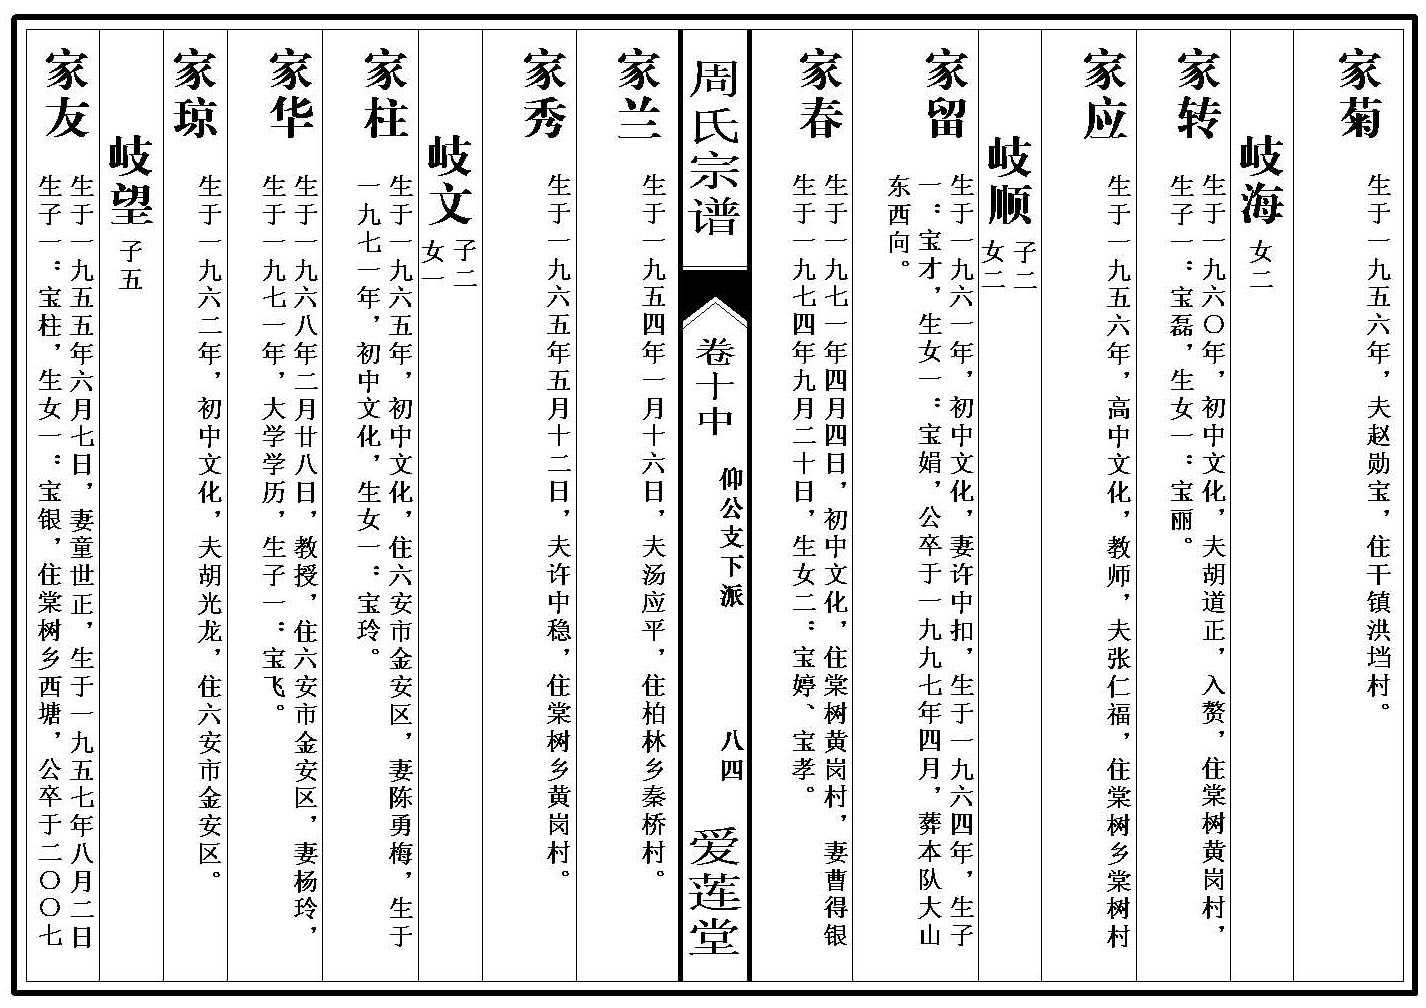 家菊
生于一九五六年，夫赵勋宝，住干镇洪垱村。
岐海
女二
家转
生于一九六〇年，初中文化，夫胡道正，入赘，住棠树黄岗村，
生子一：宝磊，生女一：宝丽。
家应
生于一九五六年，高中文化，教师，夫张仁福，住棠树乡棠树村
岐顺
子二
女二
家留
生于一九六一年，初中文化，妻许中扣，生于一九六四年，生子
一：宝才，生女一：宝娟，公卒于一九九七年四月，葬本队大山
东西向。
家春
生于一九七一年四月四日，初中文化，住棠树黄岗村，妻曹得银
生于一九七四年九月二十日，生女二：宝婷、宝孝。
周氏宗谱
卷十中
仰公支下派
八四
爱莲堂
家兰
生于一九五四年一月十六日，夫汤应平，住柏林乡秦桥村。
家秀
生于一九六五年五月十二日，夫许中稳，住棠树乡黄岗村。
岐文
子二
女一
家柱
生于一九六五年，初中文化，住六安市金安区，妻陈勇梅，生于
一九七一年，初中文化，生女一：宝玲。
家华
生于一九六八年二月廿八日，教授，住六安市金安区，妻杨玲，
生于一九七一年，大学学历，生子一：宝飞。
家琼
生于一九六二年，初中文化，夫胡光龙，住六安市金安区。
岐望
子五
家友
生于一九五五年六月七日，妻童世正，生于一九五七年八月二日
生子一：宝柱，生女一：宝银，住棠树乡西塘，公卒于二〇〇七